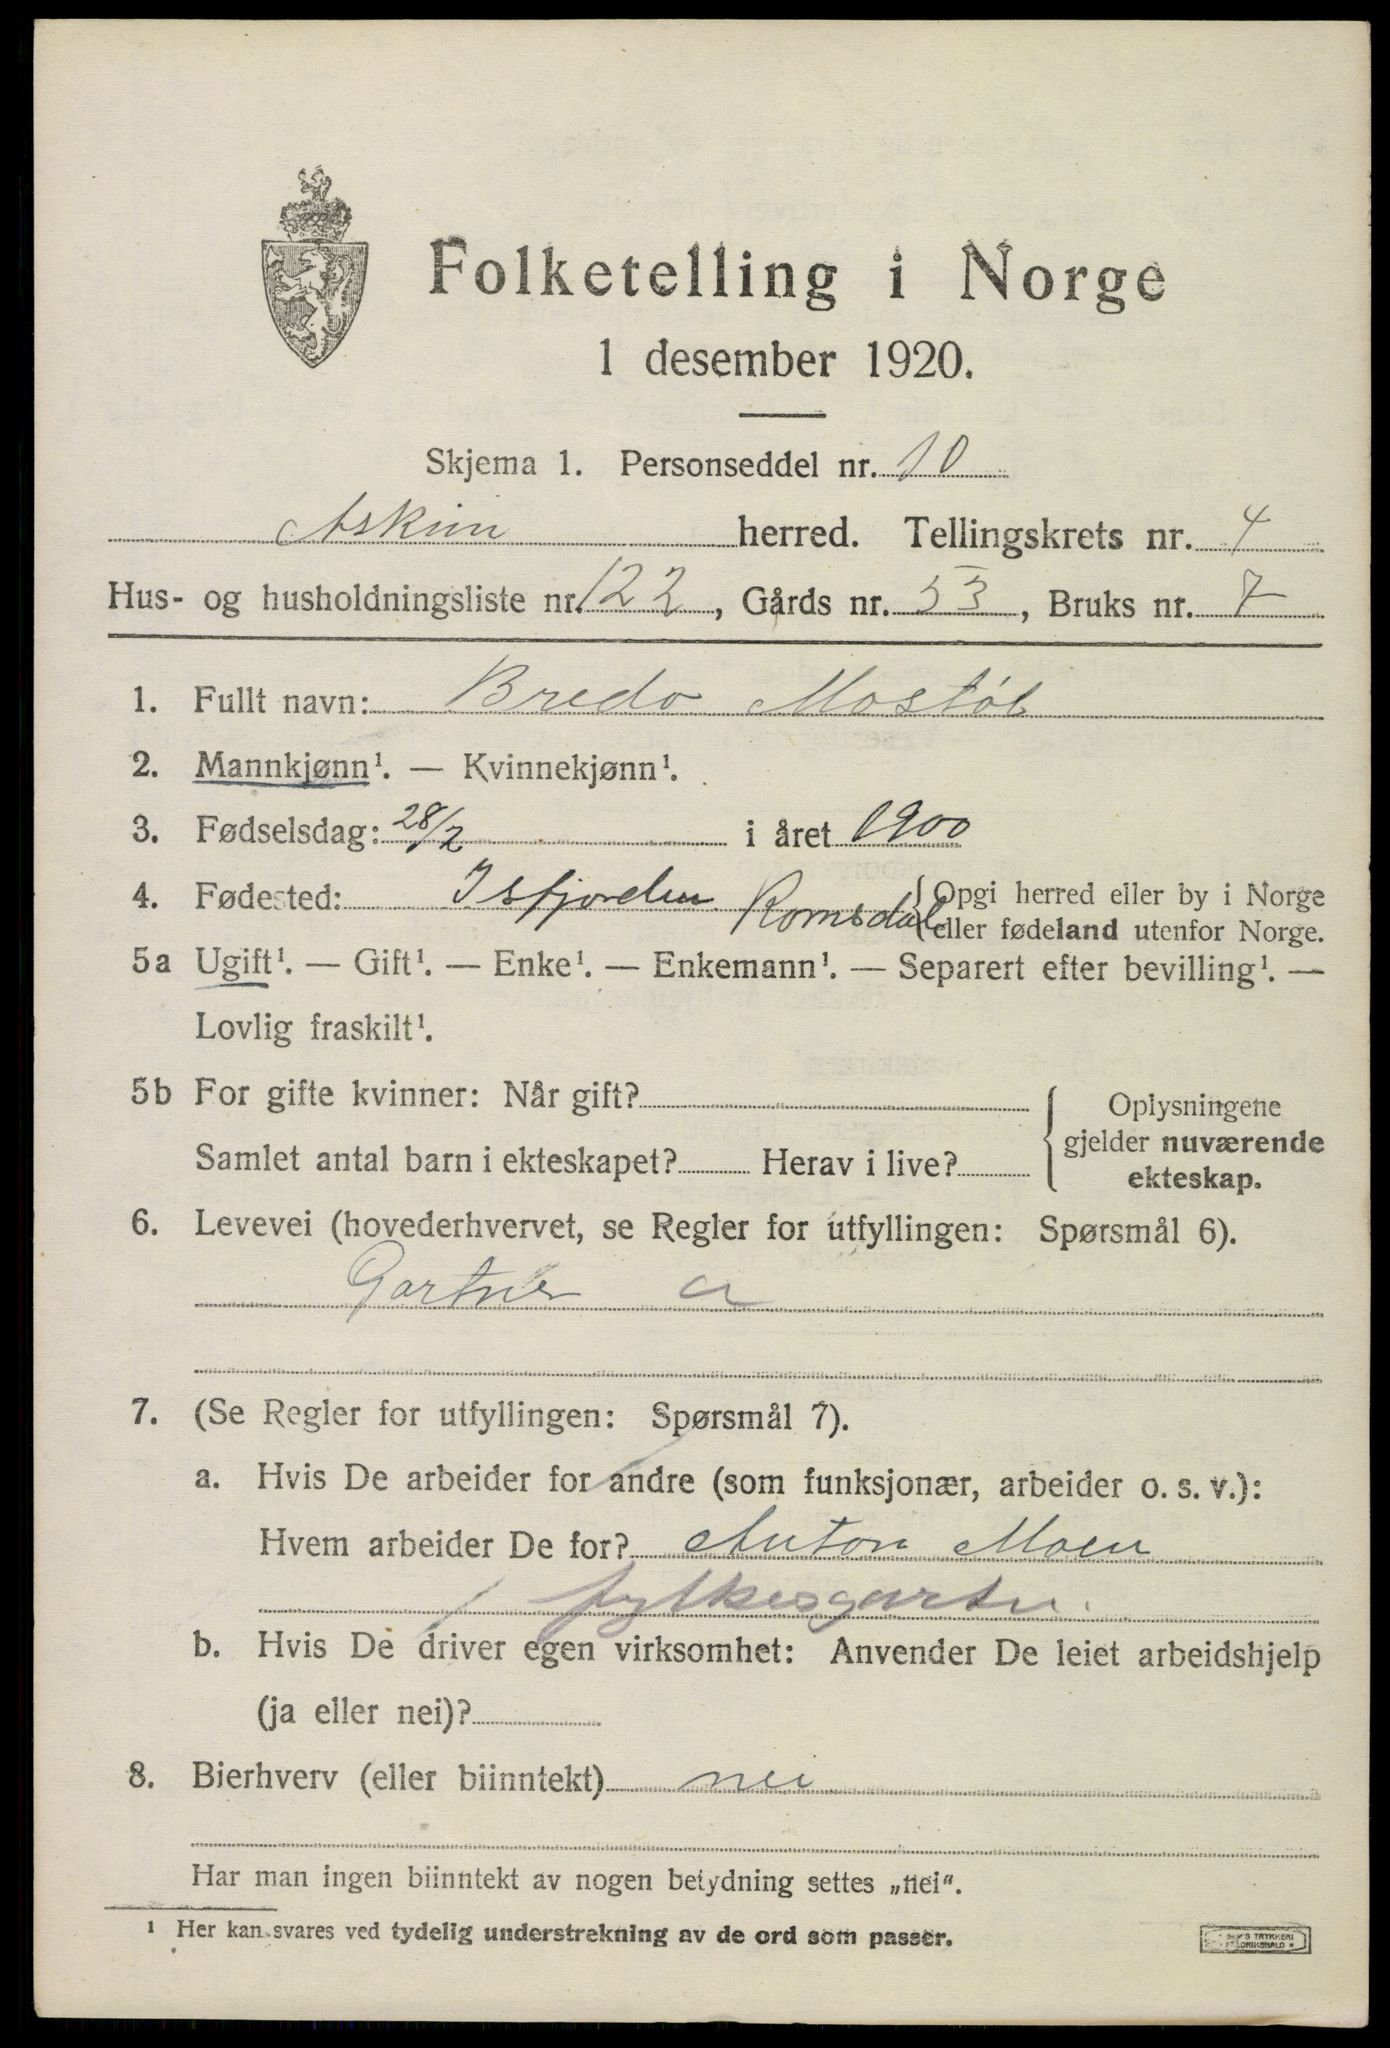 Folketelling i Norge
1 desember 1920.
Skjema 1. Personseddel nr. 10
Askim herred. Tellingskrets nr. 4
Hus- og husholdningsliste nr. 122, Gårds nr. 53, Bruks nr. 7
1. Fullt navn: Bredo Mostøl
2. Mannkjønn¹. — Kvinnekjønn¹.
3. Fødselsdag: 28/2 i året 1900
4. Fødested: Isfjorden Romsdal {Opgi herred eller by i Norge
eller fødeland utenfor Norge.
5a Ugift¹. — Gift¹. — Enke¹. — Enkemann¹. — Separert efter bevilling¹. —
Lovlig fraskilt¹.
5b For gifte kvinner: Når gift?
Samlet antal barn i ekteskapet? Herav i live?
Oplysningene
gjelder nuværende
ekteskap.
6. Levevei (hovederhvervet, se Regler for utfyllingen: Spørsmål 6).
Gartner a
7. (Se Regler for utfyllingen: Spørsmål 7).
a. Hvis De arbeider for andre (som funksjonær, arbeider o. s. v.):
Hvem arbeider De for? Anton Moen
fylkesgartn.
b. Hvis De driver egen virksomhet: Anvender De leiet arbeidshjelp
(ja eller nei)?
8. Bierhverv (eller biinntekt) nei
Har man ingen biinntekt av nogen betydning settes „nei“.
¹ Her kan svares ved tydelig understrekning av de ord som passer.
TRYKKERI